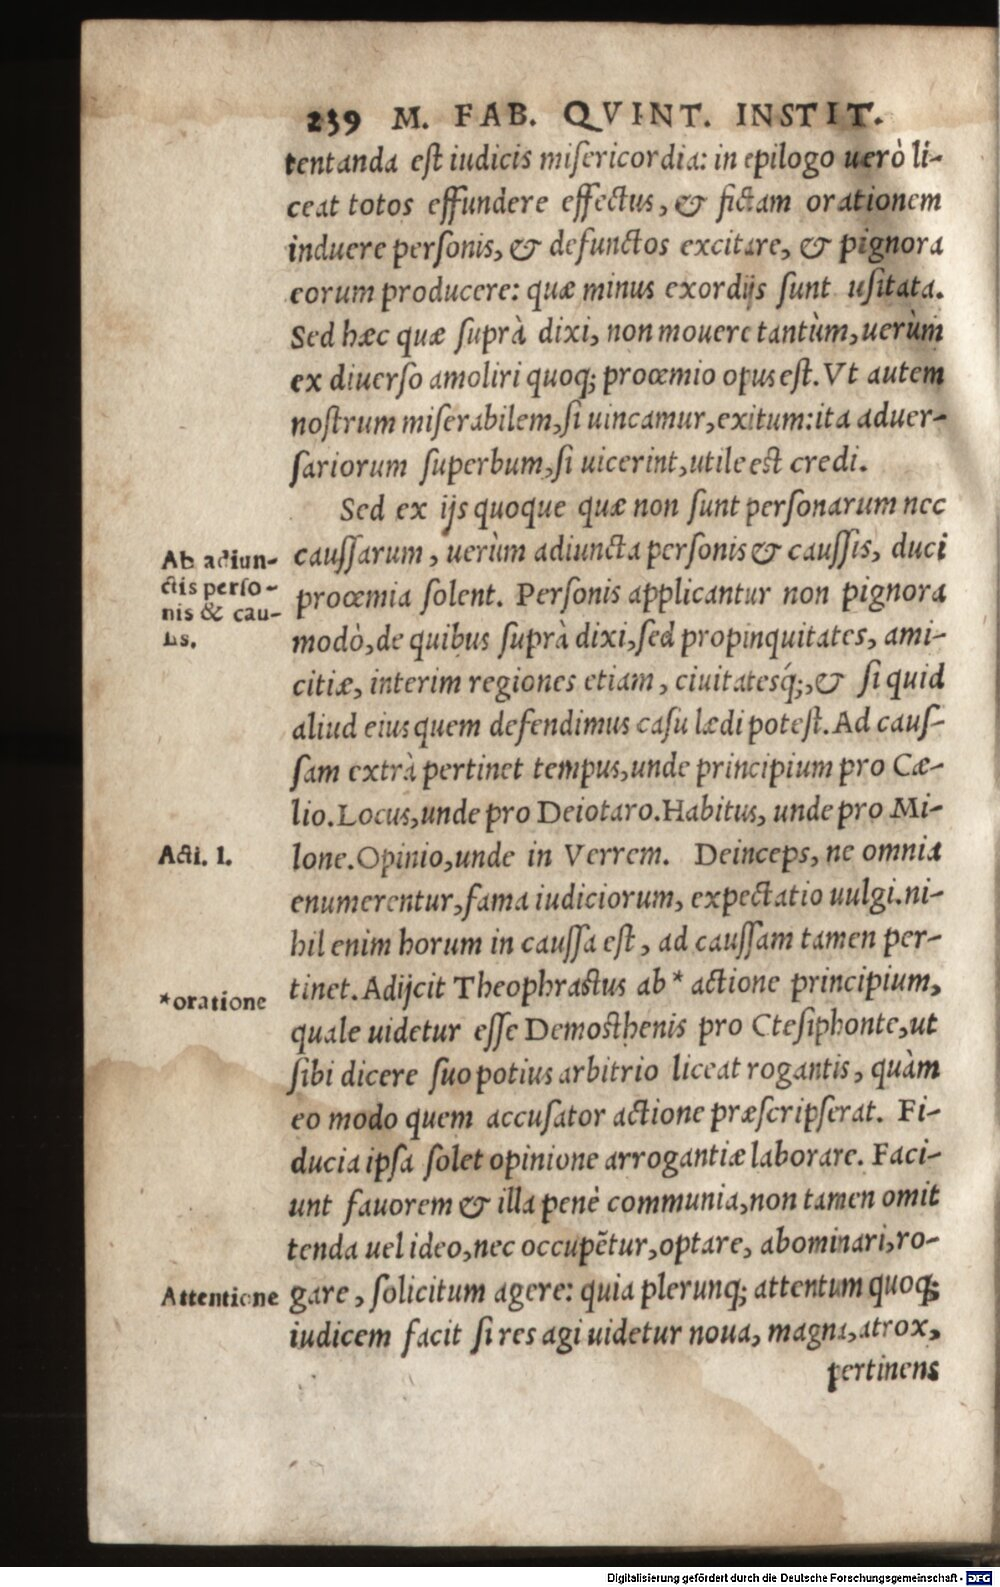 239 M. FAB. QVINT. INSTIT.
tentanda eſt iudicis miſericordia: in epilogo uerò li-
ceat totos effundere effectus, & fictam orationem
induere perſonis, & defunctos excitare, & pignora
eorum producere: quæ minus exordijs ſunt uſitata.
Sed hæc quæ ſuprà dixi, non mouere tantùm, uerùm
ex diuerſo amoliri quoq; proœmio opus eſt. Vt autem
noſtrum miſerabilem, ſi uincamur, exitum: ita aduer-
ſariorum ſuperbum, ſi uicerint, utile eſt credi.
Sed ex ijs quoque quæ non ſunt perſonarum nec
Ab adiun-
ctis perſo-
nis & cau-
ſis.
cauſſarum, uerùm adiuncta perſonis & cauſſis, duci
proœmia ſolent. Perſonis applicantur non pignora
modò, de quibus ſuprà dixi, ſed propinquitates, ami-
citiæ, interim regiones etiam, ciuitatesq́;, & ſi quid
aliud eius quem defendimus caſu lædi poteſt. Ad cauſ-
ſam extrà pertinet tempus, unde principium pro Cæ-
lio. Locus, unde pro Deiotaro. Habitus, unde pro Mi-
Acti. 1.
lone. Opinio, unde in Verrem. Deinceps, ne omnia
enumerentur, fama iudiciorum, expectatio uulgi. ni-
hil enim horum in cauſſa eſt, ad cauſſam tamen per-
*oratione
tinet. Adijcit Theophraſtus ab * actione principium,
quale uidetur eſſe Demoſthenis pro Cteſiphonte, ut
ſibi dicere ſuo potius arbitrio liceat rogantis, quàm
eo modo quem accuſator actione præſcripſerat. Fi-
ducia ipſa ſolet opinione arrogantiæ laborare. Faci-
unt fauorem & illa penè communia, non tamen omit
tenda uel ideo, nec occupẽtur, optare, abominari, ro-
Attentione
gare, ſolicitum agere: quia plerunq; attentum quoq;
iudicem facit ſi res agi uidetur noua, magna, atrox,
pertinens
Digitalisierung gefördert durch die Deutsche Forschungsgemeinschaft - DFG